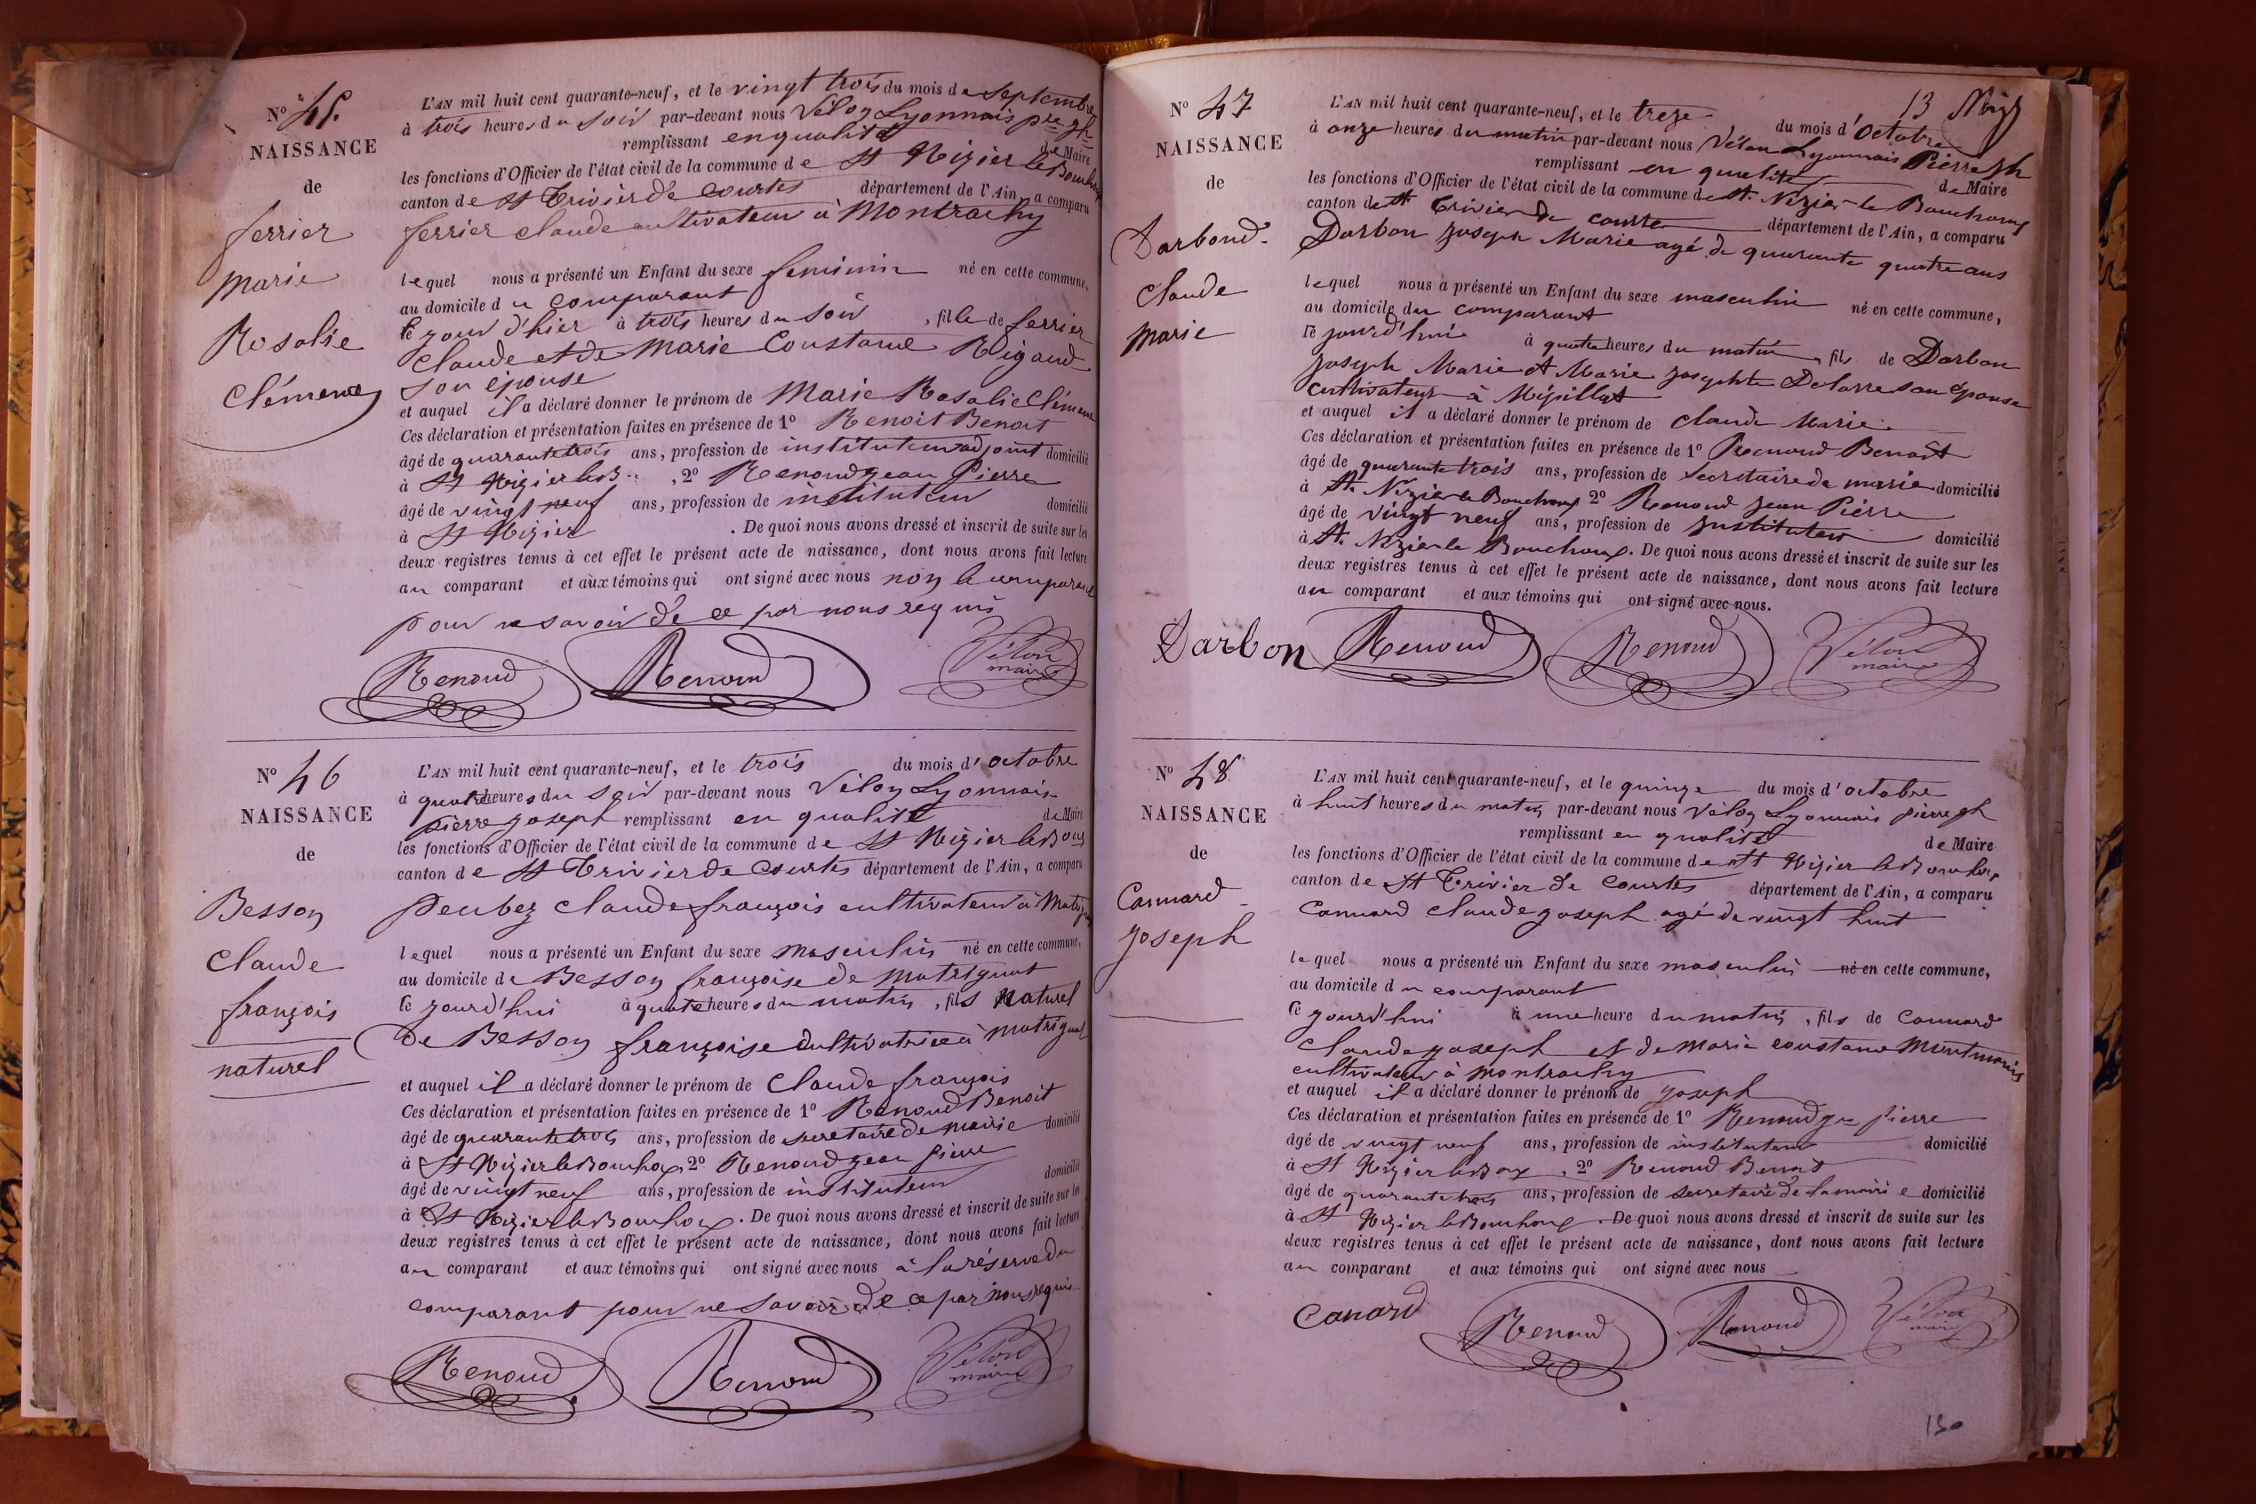 N° 45.
NAISSANCE
de
ferrier
Marie
Rosalie
Clémence
L'AN mil huit cent quarante-neuf, et le vingt trois du mois de Septembre
à trois heures du soir par-devant nous Véloy Lyonnais pre jh
remplissant en qualité de Maire
les fonctions d'Officier de l'état civil de la commune de St Nizier le Bouchoux
canton de St Trivier de Courtes département de l'Ain, a comparu
ferrier claude cultivateur à Montrachy
lequel nous a présenté un Enfant du sexe feminin né en cette commune,
au domicile du comparant
le jour d'hier à trois heures du soir, fille de ferrier
Claude et de Marie Constance Rigaud
son épouse
et auquel il a déclaré donner le prénom de Marie Rosalie Clémence
Ces déclaration et présentation faites en présence de 1° Renoit Benoit
âgé de quarante trois ans, profession de instituteur adjoint domicilié
à St Nizier le B.. , 2° Renoud jean Pierre
âgé de vingt neuf ans, profession de instituteur domicilié
à St Nizier . De quoi nous avons dressé et inscrit de suite sur les
deux registres tenus à cet effet le présent acte de naissance, dont nous avons fait lecture
au comparant et aux témoins qui ont signé avec nous non le comparant
pour ne savoir de ce par nous requis
Renoud Renoud Vélon
maire
N° 46
NAISSANCE
de
Besson
Claude
françois
naturel
L'AN mil huit cent quarante-neuf, et le trois du mois d'octobre
à quatre heures du soir par-devant nous Véloy Lyonnais
pierre joseph remplissant en qualité de Maire
les fonctions d'Officier de l'état civil de la commune de St Nizier le Boux
canton de St Trivier de Courtes département de l'Ain, a comparu
Peubez claude françois cultivateur à Matrignat
lequel nous a présenté un Enfant du sexe masculin né en cette commune,
au domicile de Besson françoise de Matrignat
le jourd'hui à quatre heures du matin, fils naturel
de Besson françoise cultivatrice à Matrignat
et auquel il a déclaré donner le prénom de Claude françois
Ces déclaration et présentation faites en présence de 1° Renoud Benoit
âgé de quarante trois ans, profession de secretaire de Mairie domicilié
à St Nizier le Bouchoux, 2° Renoud jean pierre
âgé de vingt neuf ans, profession de instituteur domicilié
à St Nizier le Bouchoux. De quoi nous avons dressé et inscrit de suite sur les
deux registres tenus à cet effet le présent acte de naissance, dont nous avons fait lecture
au comparant et aux témoins qui ont signé avec nous à la réserve du
comparant pour ne savoir de ce par nous requis
Renoud Renoud Vélon
maire
13 
N° 47
NAISSANCE
de
Darbond
Claude
Marie
L'AN mil huit cent quarante-neuf, et le treze du mois d'octobre
à onze heures du matin par-devant nous Vélon Lyonnais Pierre Jh
remplissant en qualité de Maire
les fonctions d'Officier de l'état civil de la commune de St. Nizier le Bouchoux
canton de St Trivier de courtes département de l'Ain, a comparu
Darbon Joseph Marie agé de quarante quatre ans
lequel nous a présenté un Enfant du sexe masculin né en cette commune,
au domicile du comparant
le jourd'hui à quatre heures du matin, fils de Darbon
Joseph Marie et Marie Josephte Delorre son épouse
cultivateur à Mépillat
et auquel il a déclaré donner le prénom de Claude Marie
Ces déclaration et présentation faites en présence de 1° Renoud Benoît
âgé de quarante trois ans, profession de Secretaire de mairie domicilié
à St. Nizier le Bouchoux 2° Renoud Jean Pierre
âgé de vingt neuf ans, profession de Instituteur domicilié
à St. Nizier le Bouchoux. De quoi nous avons dressé et inscrit de suite sur les
deux registres tenus à cet effet le présent acte de naissance, dont nous avons fait lecture
au comparant et aux témoins qui ont signé avec nous.
Darbon Renoud Renoud Vélon
maire
N° 48
NAISSANCE
de
Cannard
Joseph
L'AN mil huit cent quarante-neuf, et le quinze du mois d'octobre
à huit heures du matin par-devant nous Véloy Lyonnais pierre jh
remplissant en qualité de Maire
les fonctions d'Officier de l'état civil de la commune de St Nizier le Bouchoux
canton de St Trivier de Courtes département de l'Ain, a comparu
Cannard claude joseph agé de vingt huit
lequel nous a présenté un Enfant du sexe masculin né en cette commune,
au domicile du comparant
le jourd'hui à une heure du matin, fils de Cannard
Claude joseph et de Marie constance Montmarin
cultivateur à Montrachy
et auquel il a déclaré donner le prénom de joseph
Ces déclaration et présentation faites en présence de 1° Renoud jn pierre
âgé de vingt neuf ans, profession de instituteur domicilié
à St Nizier le Boux, 2° Renoud Benoit
âgé de quarante trois ans, profession de secretaire de la mairie domicilié
à St Nizier le Bouchoux. De quoi nous avons dressé et inscrit de suite sur les
deux registres tenus à cet effet le présent acte de naissance, dont nous avons fait lecture
au comparant et aux témoins qui ont signé avec nous
Canard Renoud Renoud Vélon
maire
130